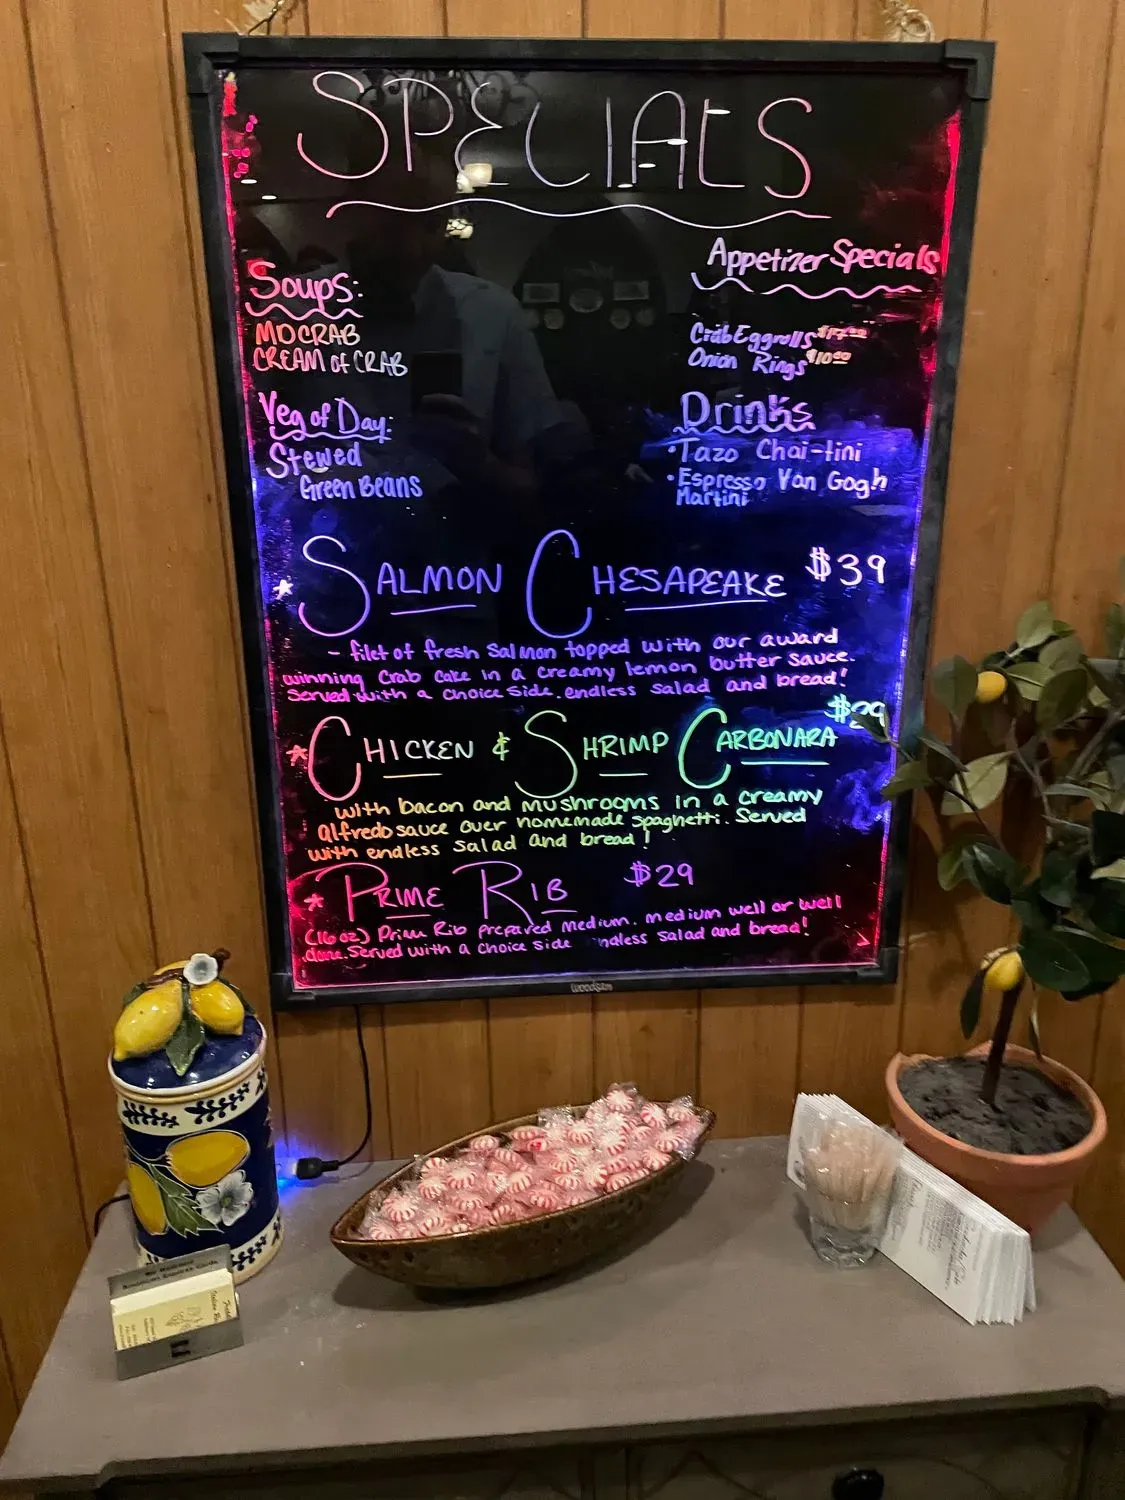 SPECIALS
Soups:
MD CRAB
CREAM of CRAB
Veg of Day:
Stewed
Green Beans
Appetizer Specials
Crab Eggrolls $17.00
Onion Rings $10.00
Drinks
• Tazo Chai-tini
• Espresso Van Gogh
Martini
* SALMON CHESAPEAKE $39
- filet of fresh salmon topped with our award
winning crab cake in a creamy lemon butter sauce.
Served with a choice side, endless salad and bread!
$29
* CHICKEN & SHRIMP CARBONARA
with bacon and mushrooms in a creamy
alfredo sauce over homemade spaghetti. Served
with endless salad and bread!
* PRIME RIB $29
(16 oz) Prime Rib prepared medium, medium well or well
done. Served with a choice side ndless salad and bread!
woodsam